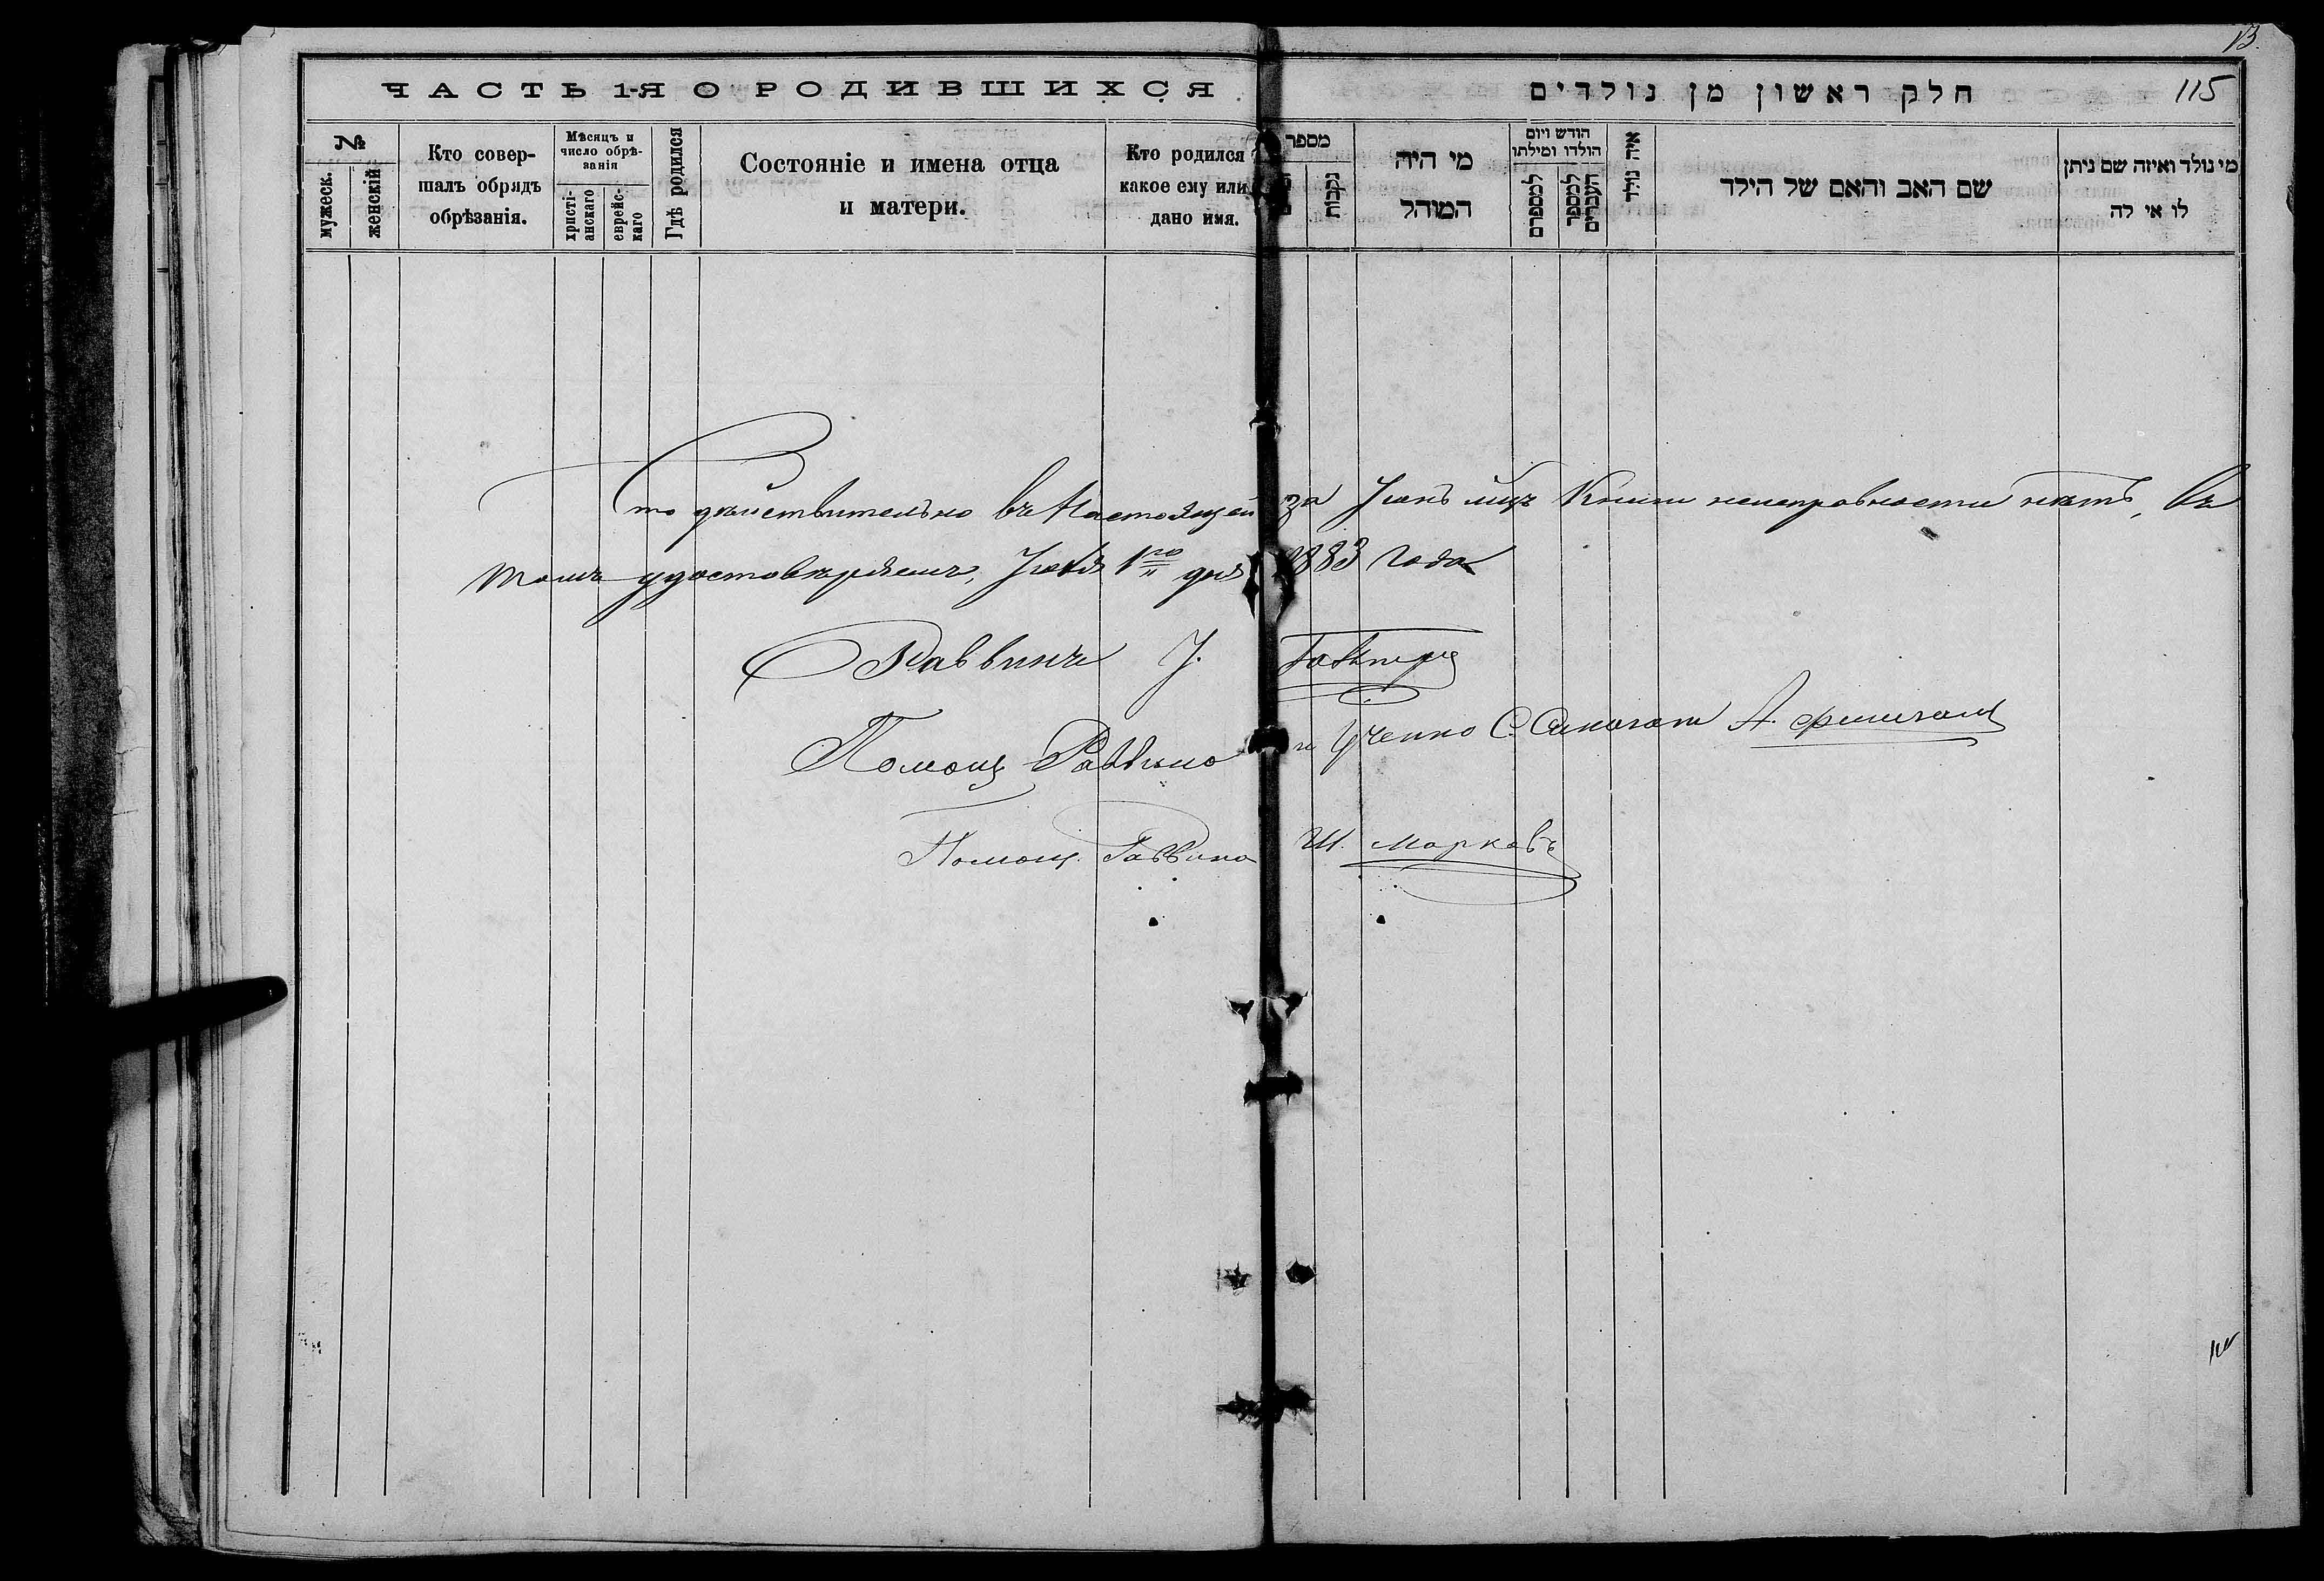 13.
ЧАСТЬ 1-Я О РОДИВШИХСЯ
חלק ראשון מן נולדים
115
№
мужеск.
женскій
Кто совер-
шалъ обрядъ
обрѣзанія.
Мѣсяцъ и
число обрѣ-
занія
христі-
анскаго
еврейс-
каго
Гдѣ родился
Состояніе и имена отца
и матери.
Кто родился
какое ему или
дано имя.
מספר
נקבות
מי היה
המוהל
הודש ויום
הולדו ומילתו
למספרם
למספר
העברים
איה נולד
שם האב והאם של הילד
מי נולד ואיזה שם ניתן
לו או לה
Что дѣйствительно въ Настоящей за Іюнь мцъ Книги неисправности нѣтъ, въ
томъ удостовѣряемъ, Іюля 1го дня 1883 года
Раввинъ І.
Помощ Раввина и А.
Помощ. Раввина Ш. Марковъ